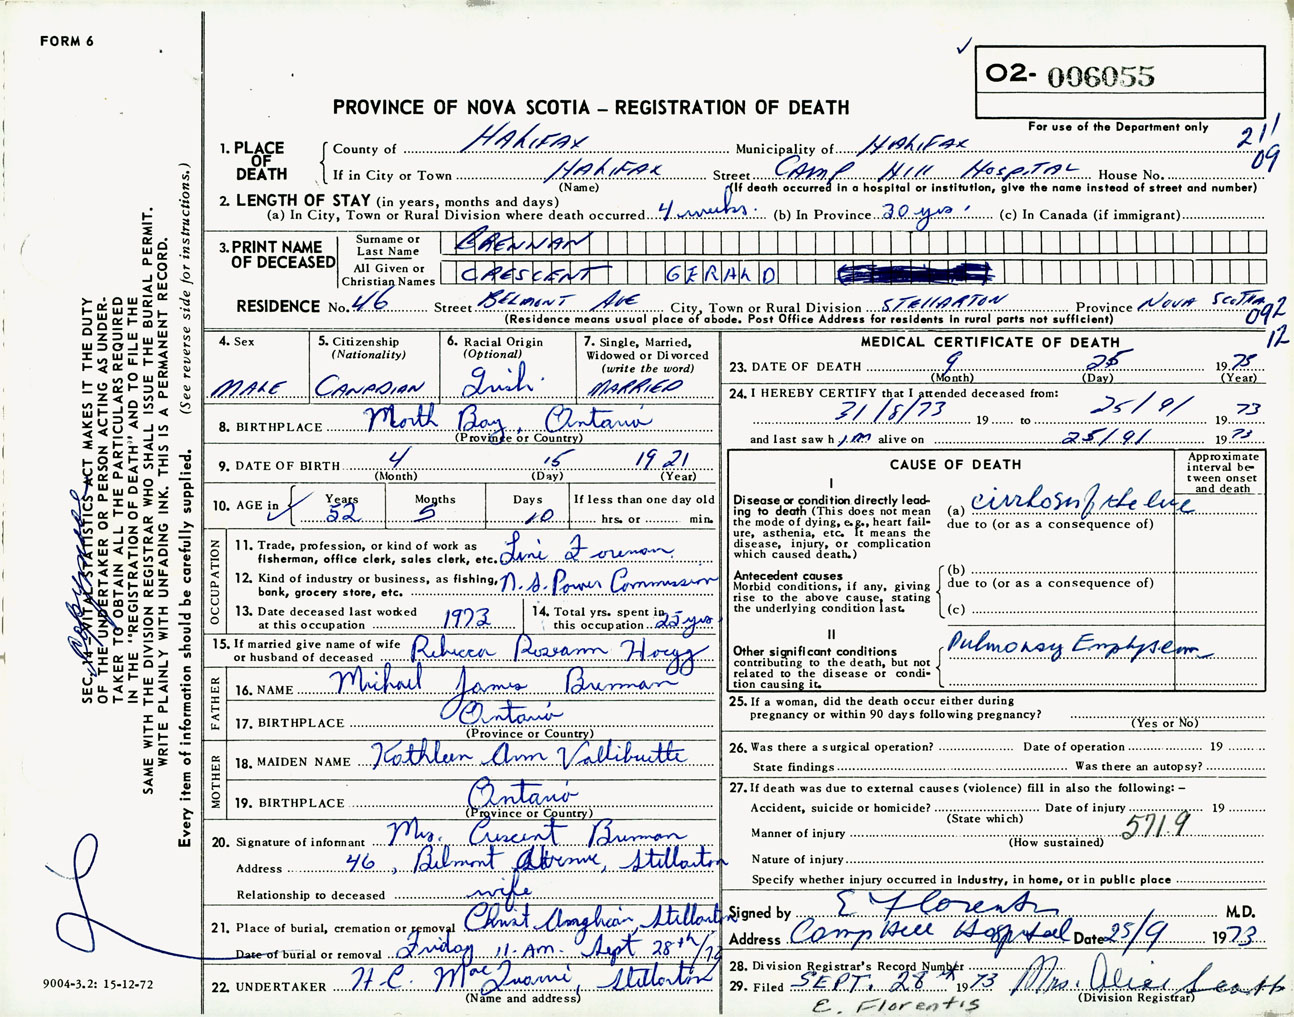 FORM 6
O2- 006055
For use of the Department only
PROVINCE OF NOVA SCOTIA – REGISTRATION OF DEATH
211
09
1. PLACE OF DEATH
County of HALIFAX Municipality of HALIFAX
If in City or Town HALIFAX Street CAMP HILL HOSPITAL House No.
(Name) (If death occurred in a hospital or institution, give the name instead of street and number)
2. LENGTH OF STAY (in years, months and days)
(a) In City, Town or Rural Division where death occurred 4 weeks. (b) In Province 30 yrs. (c) In Canada (if immigrant)
3. PRINT NAME OF DECEASED
Surname or Last Name BRENNAN
All Given or Christian Names CRESCENT GERALD
RESIDENCE No. 46 Street BELMONT AVE City, Town or Rural Division STELLARTON Province NOVA SCOTIA
(Residence means usual place of abode. Post Office Address for residents in rural parts not sufficient)
092
12
4. Sex MALE
5. Citizenship (Nationality) CANADIAN
6. Racial Origin (Optional) Irish
7. Single, Married, Widowed or Divorced (write the word) MARRIED
8. BIRTHPLACE North Bay, Ontario
(Province or Country)
9. DATE OF BIRTH 4 15 1921
(Month) (Day) (Year)
10. AGE in Years 52 Months 5 Days 10 If less than one day old hrs. or min.
OCCUPATION
11. Trade, profession, or kind of work as fisherman, office clerk, sales clerk, etc. Line Foreman
12. Kind of industry or business, as fishing, bank, grocery store, etc. N.S. Power Commission
13. Date deceased last worked at this occupation 1973
14. Total yrs. spent in this occupation 25 yrs
15. If married give name of wife or husband of deceased Rebecca Roseann Hoegg
FATHER
16. NAME Michael James Brennan
17. BIRTHPLACE Ontario
(Province or Country)
MOTHER
18. MAIDEN NAME Kathleen Ann
19. BIRTHPLACE Ontario
(Province or Country)
20. Signature of informant Mrs. Crescent Brennan
Address 46, Belmont Avenue, Stellarton
Relationship to deceased wife
21. Place of burial, cremation or removal Christ Anglican, Stellarton
Date of burial or removal Friday 11. AM. Sept 28th/73
22. UNDERTAKER H.C. Stellarton
(Name and address)
MEDICAL CERTIFICATE OF DEATH
23. DATE OF DEATH 9 25 1973
(Month) (Day) (Year)
24. I HEREBY CERTIFY that I attended deceased from:
31/8/73 19 to 25/9/ 1973
and last saw h im alive on 25/9/ 1973
CAUSE OF DEATH
Approximate interval between onset and death
I
Disease or condition directly leading to death (This does not mean the mode of dying, e.g., heart failure, asthenia, etc. It means the disease, injury, or complication which caused death.)
(a) cirrhosis of the liver
due to (or as a consequence of)
Antecedent causes
Morbid conditions, if any, giving rise to the above cause, stating the underlying condition last.
(b)
due to (or as a consequence of)
(c)
II
Other significant conditions contributing to the death, but not related to the disease or condition causing it.
Pulmonary Emphysema
25. If a woman, did the death occur either during pregnancy or within 90 days following pregnancy?
(Yes or No)
26. Was there a surgical operation? Date of operation 19
State findings Was there an autopsy?
27. If death was due to external causes (violence) fill in also the following: –
Accident, suicide or homicide? Date of injury 19
(State which)
Manner of injury 571.9
(How sustained)
Nature of injury
Specify whether injury occurred in Industry, in home, or in public place
Signed by E Florentis M.D.
Address Camp Hill Hospital Date 25/9 1973
28. Division Registrar's Record Number
29. Filed SEPT. 28th 1973 Mrs. Alice
(Division Registrar)
E. Florentis
SEC. 14 – VITAL STATISTICS ACT MAKES IT THE DUTY
OF THE UNDERTAKER OR PERSON ACTING AS UNDER-
TAKER TO OBTAIN ALL THE PARTICULARS REQUIRED
IN THE "REGISTRATION OF DEATH" AND TO FILE THE
SAME WITH THE DIVISION REGISTRAR WHO SHALL ISSUE THE BURIAL PERMIT.
WRITE PLAINLY WITH UNFADING INK. THIS IS A PERMANENT RECORD.
Every item of information should be carefully supplied. (See reverse side for instructions.)
9004-3.2: 15-12-72